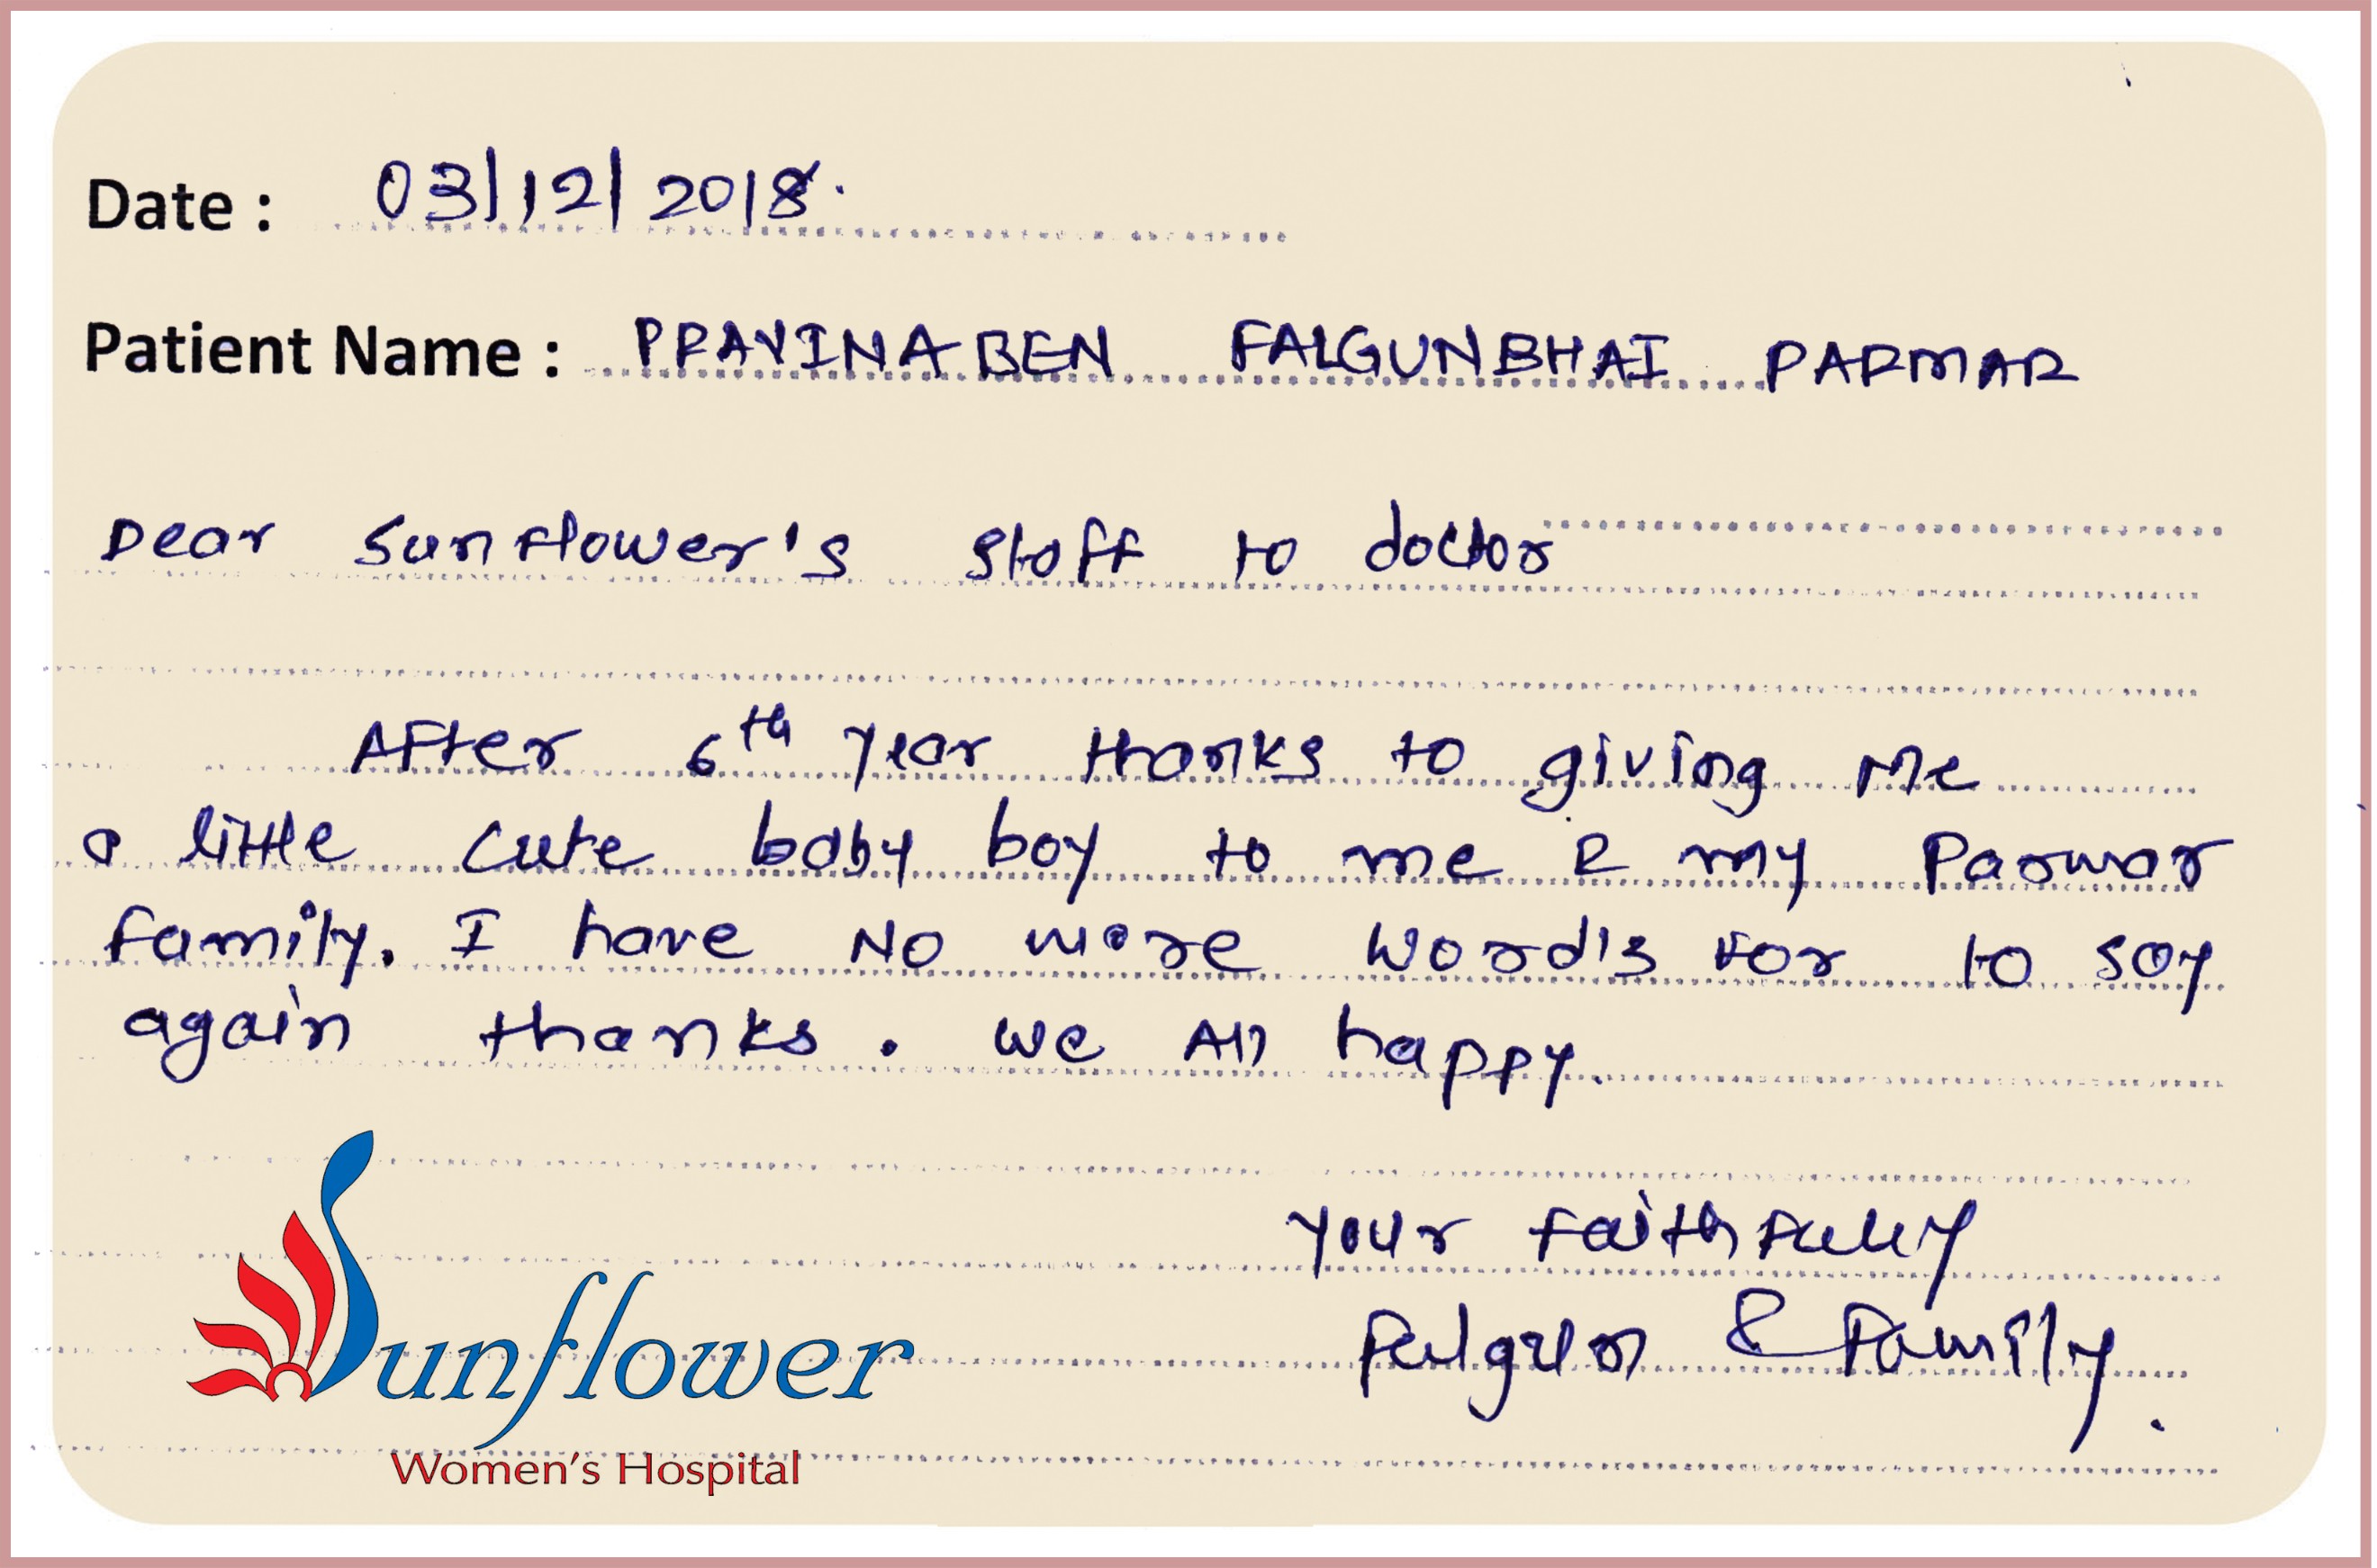 Date : 03/12/2018.
Patient Name : PRAVINABEN FALGUNBHAI PARMAR
Dear Sunflower's staff to doctor
After 6th year thanks to giving me
a little cute baby boy to me & my Parmar
family. I have No more word's For to say
again thanks. we All happy.
your faithfully
Falgun & Family.
Sunflower
Women's Hospital